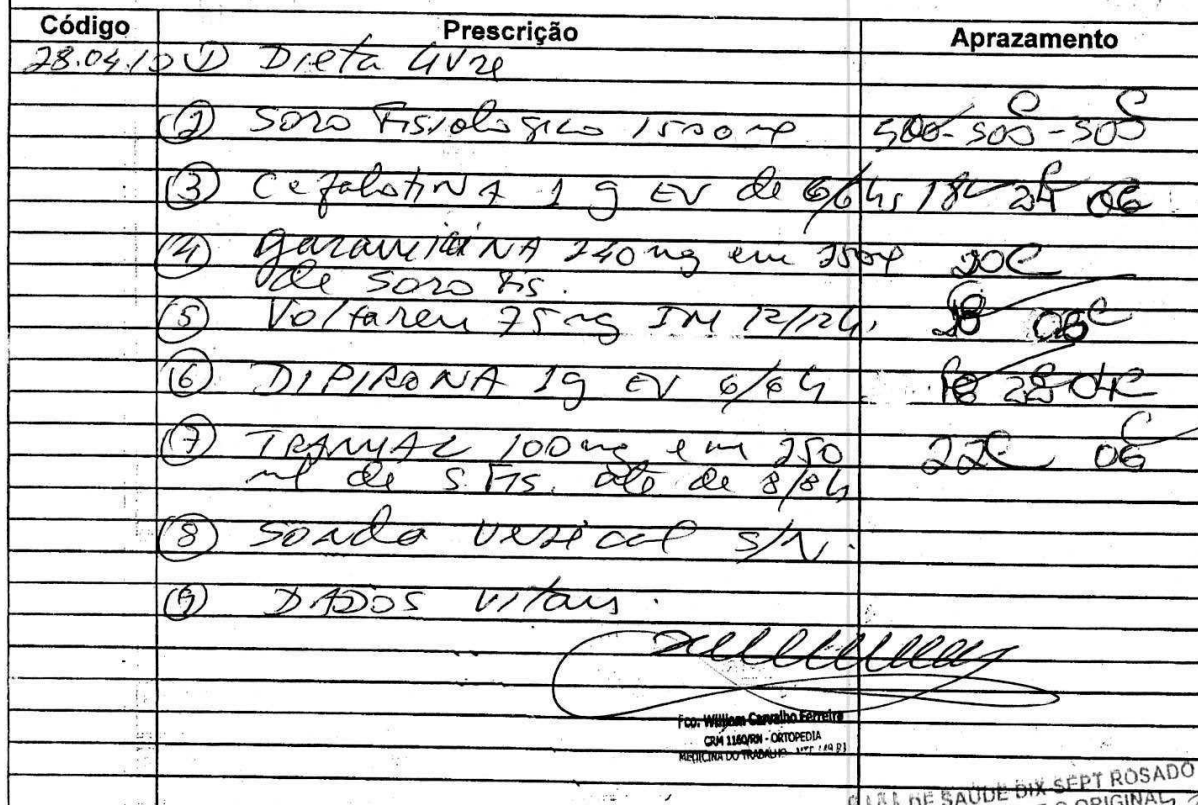 Código Prescrição Aprazamento
28.04.10 ① Dieta livre
② Soro Fisiológico 1500 ml 500-500-500
③ Cefalotina 1 g EV de 6/6hs 18 24 06
④ Garamicina 240 mg em 250 ml 20
de Soro Fis.
⑤ Voltaren 75 mg IM 12/12h. 18 06
⑥ DIPIRONA 1g EV 6/6h 22 04
⑦ TRAMAL 100 mg em 250 22 06
ml de S. Fis. até de 8/8h
⑧ Sonda vesical S/N.
⑨ DADOS vitais.
Fco. William Carvalho Ferreira
CRM 1160/RN - ORTOPEDIA
MEDICINA DO TRABALHO
DE SAÚDE DIX-SEPT ROSADO
ORIGINAL